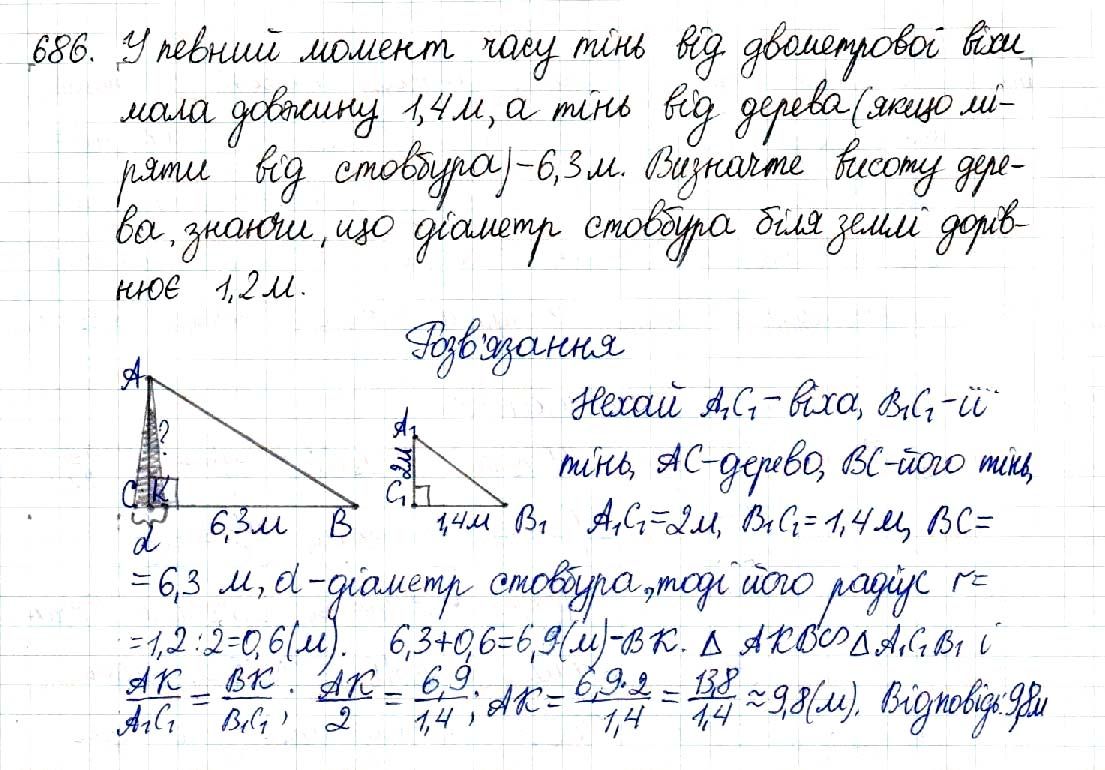 686. У певний момент часу тінь від двометрової віхи
мала довжину 1,4 м, а тінь від дерева (якщо мі-
ряти від стовбура) – 6,3 м. Визначте висоту дере-
ва, знаючи, що діаметр стовбура біля землі дорів-
нює 1,2 м.
Розв'язання
Нехай A₁C₁ – віха, B₁C₁ – її
тінь, AC – дерево, BC – його тінь,
A₁C₁ = 2 м, B₁C₁ = 1,4 м, BC =
= 6,3 м, d – діаметр стовбура, тоді його радіус r =
= 1,2 : 2 = 0,6 (м). 6,3 + 0,6 = 6,9 (м) – BK. Δ AKB ∽ Δ A₁C₁B₁ і
AK/A₁C₁ = BK/B₁C₁; AK/2 = 6,9/1,4; AK = 6,9·2/1,4 = 13,8/1,4 ≈ 9,8 (м). Відповідь: 9,8 м
A
?
C K
d
6,3 м
B
A₁
2 м
C₁
1,4 м
B₁